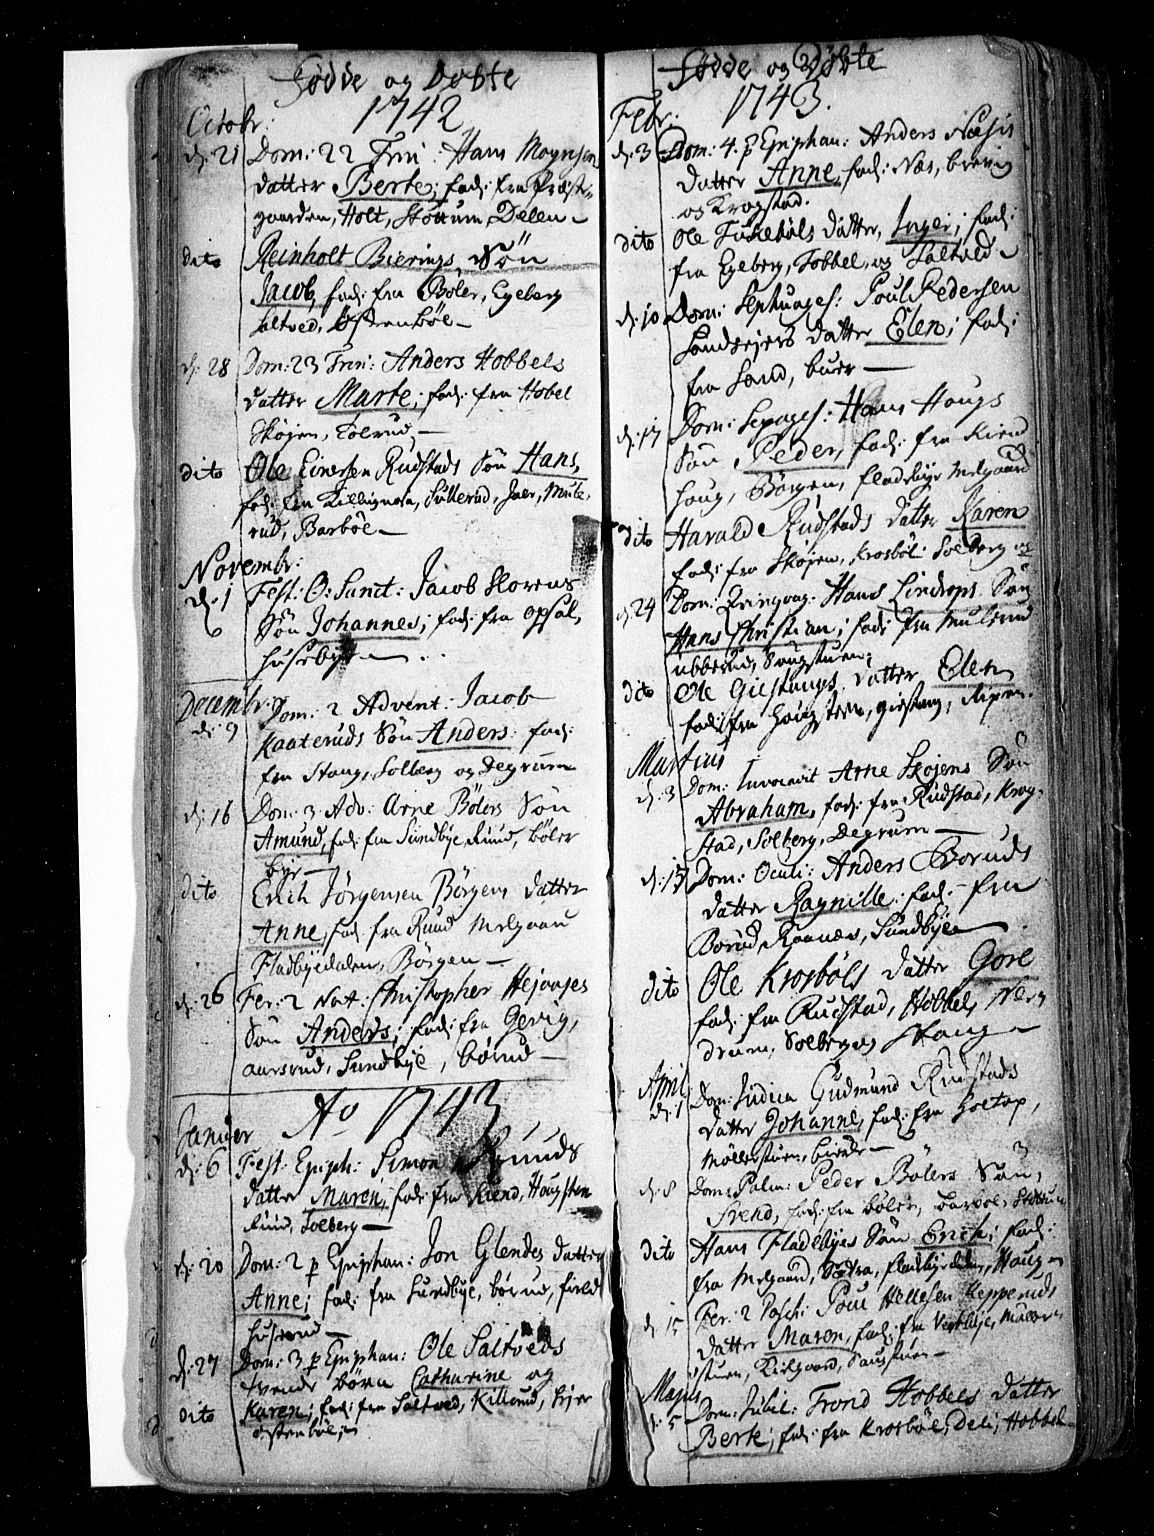 Födde og Döbte
1742
Octobr:
d: 21 Dom: 22 Trin: Hans Moynsens
datter Berte; fad: fra Præste-
gaarden, Holt, Stöttum, Delen -
dito Reinholt Bierings Sön
Jacob, fad: fra Böler, Egeberg
Saltved, Østenböl -
d: 28 Dom: 23 Trin: Anders Hobbels
datter Marte, fad: fra Hobel
Skøjen, Tolrud -
dito Ole Einersen Rudstads Sön Hans,
fad: fra Killingmoen, Sullerud, Jaer,
rud, Barböl -
Novembr:
d: 1 Fest: O: Sanct: Jacob
Sön Johannes; fad: fra Opsal,
Husebye -
Decembr:
d: 9 Dom: 2 Advent: Jacob
Kaateruds Sön Anders: fad:
fra Haug, Solberg og Degrum
d: 16 Dom: 3 Adv: Arne Bölers Sön
Amund, fad: fra Sundbye, Ruud, böler
bye -
dito Erich Jörgensen Börgens datter
Anne fad: fra Ruud Melgaar
Fladbyedalen, Börgen -
d: 26 Fer: 2 Nat: Christopher Hejaajes
Sön Anders; fad: fra Gevig,
aarsrud, Sundbye, börud -
Ao 1743
Januer
d: 6 Fest: Epiph: Simon Ruuds
datter Maren, fad: fra Kiend, Haugsten
Ruud, Solberg -
d: 20 Dom: 2 p Epiphan: Jon Glendes datter
Anne; fad: fra Sundbye, börud,
huserud -
d: 27 Dom: 3 p Epiphan: Ole Saltveds
tvende börn Catharine og
dito Karen; fad: fra Saltved, Killerud,
Østenböl,
Födde og Döbte
1743.
Febr:
d: 3 Dom: 4 p Epiphan: Anders Næsis
datter Anne, fad: Næs, brevig
og Krogstad.
dito Ole Tuseböls datter, Inger; fad:
fra Egeberg, Tobbel, og Saltved -
d: 10 Dom: Septuages: Poul Pedersen
Sandsejers datter Elen; fad:
fra Sand, buer -
d: 17 Dom: Sexages: Hans Haugs
Sön Peder, fad: fra Kiend
haug, Börgen, fladebye Melgaard
dito Harald Rudstads datter Karen
fad: fra Skøjen, Krosböl: Solberg og
d: 24 Dom: Qvinqvag: Hans Lindrops Sön
Hans Christian; fad: fra Mulerud
ubberud, Saugstuen;
dito Ole Giestangs datter Elen,
fad: fra Haugsteen, giestang, Ripen.
Martius
d: 3 Dom: Invocavit Arne Skøjens Sön
Abraham, fad: fra Rudstad, Krog-
stad, Solberg, Degrum -
d: 17 Dom: Oculi: Anders Boruds
datter Ragnille: fad: fra
Borud, Raanæs, Sundbye
dito Ole Krosböls datter Gore
fad: fra Rudstad, Hobbel, Ner
drum, Solberg og Haug -
April
d: 1 Dom: Judica Gudmund Rudstads
datter Johanne, fad: fra Holtop,
Möllerstuen, biende -
d: 8 Dom: Palm: Peder Bölers Sön,
Svend, fad: fra böler, barböl, Stöttum
dito Hans Fladebyes Sön Erich; fad:
fra Melgaard, Södra, fladbyedalen, Haug -
d: 15 Fer: 2 Pasch: Poul Hellesen Kepperuds
datter Maren, fad: fra Vestbye, Möller
stuen, Kielgaard, Saugstuen -
Majus
d: 5 Dom: Jubil: Trond Hobbels datter
Berte; fad: fra Krosböl, Deli, Hobbel